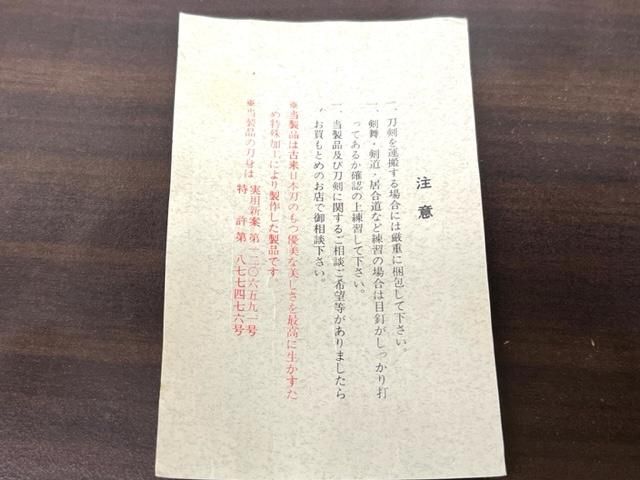 注意
一、刀剣を運搬する場合には厳重に梱包して下さい。
一、剣舞・剣道・居合道など練習の場合は目釘がしっかり打
ってあるか確認の上練習して下さい。
一、当製品及び刀剣に関するご相談ご希望等がありましたら
お買もとめのお店で御相談下さい。
※当製品は古来日本刀のもつ優美な美しさを最高に生かすた
め特殊加工により製作した製品です
※当製品の刀身は 実用新案 第一二〇六五九一号
特許 第 八七七四七六号